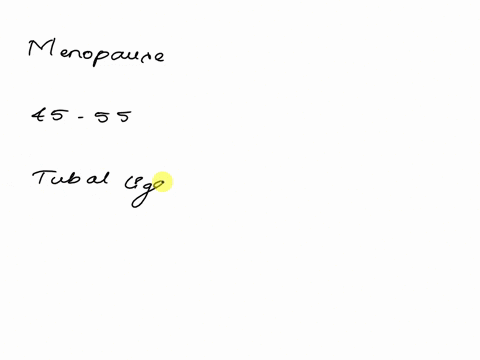 Menopause
45 - 55
Tubal lig